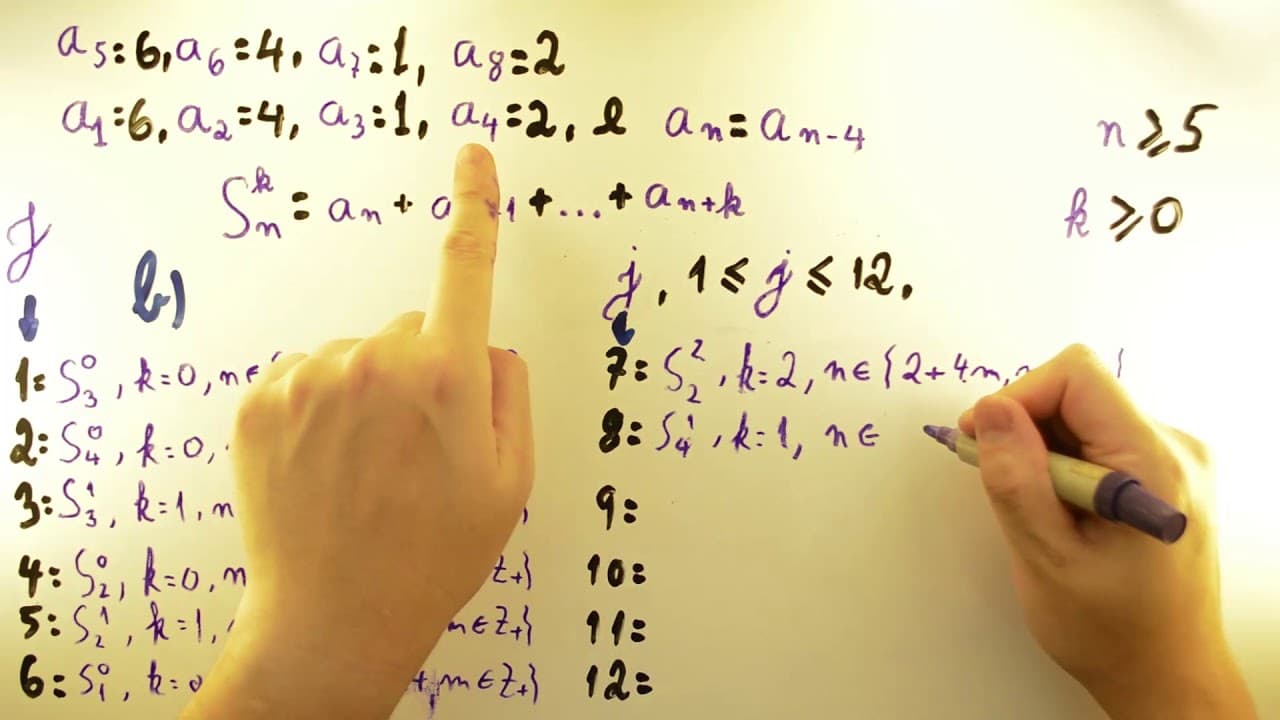 a₅=6, a₆=4, a₇=1, a₈=2
a₁=6, a₂=4, a₃=1, a₄=2, e aₙ=aₙ₋₄ n≥5
Sₙᵏ = aₙ + a + ... + aₙ₊ₖ k≥0
j
b) j, 1≤j≤12.
1: S₃⁰, k=0, n∈{
2: S₄⁰, k=0,
3: S₃¹, k=1, n
4: S₂⁰, k=0, n Z₊}
5: S₂¹, k=1, m∈Z₊}
6: S₁⁰, k=0 m∈Z₊}
7: S₂², k=2, n∈{2+4m, }
8: S₄¹, k=1, n∈
9:
10:
11:
12: